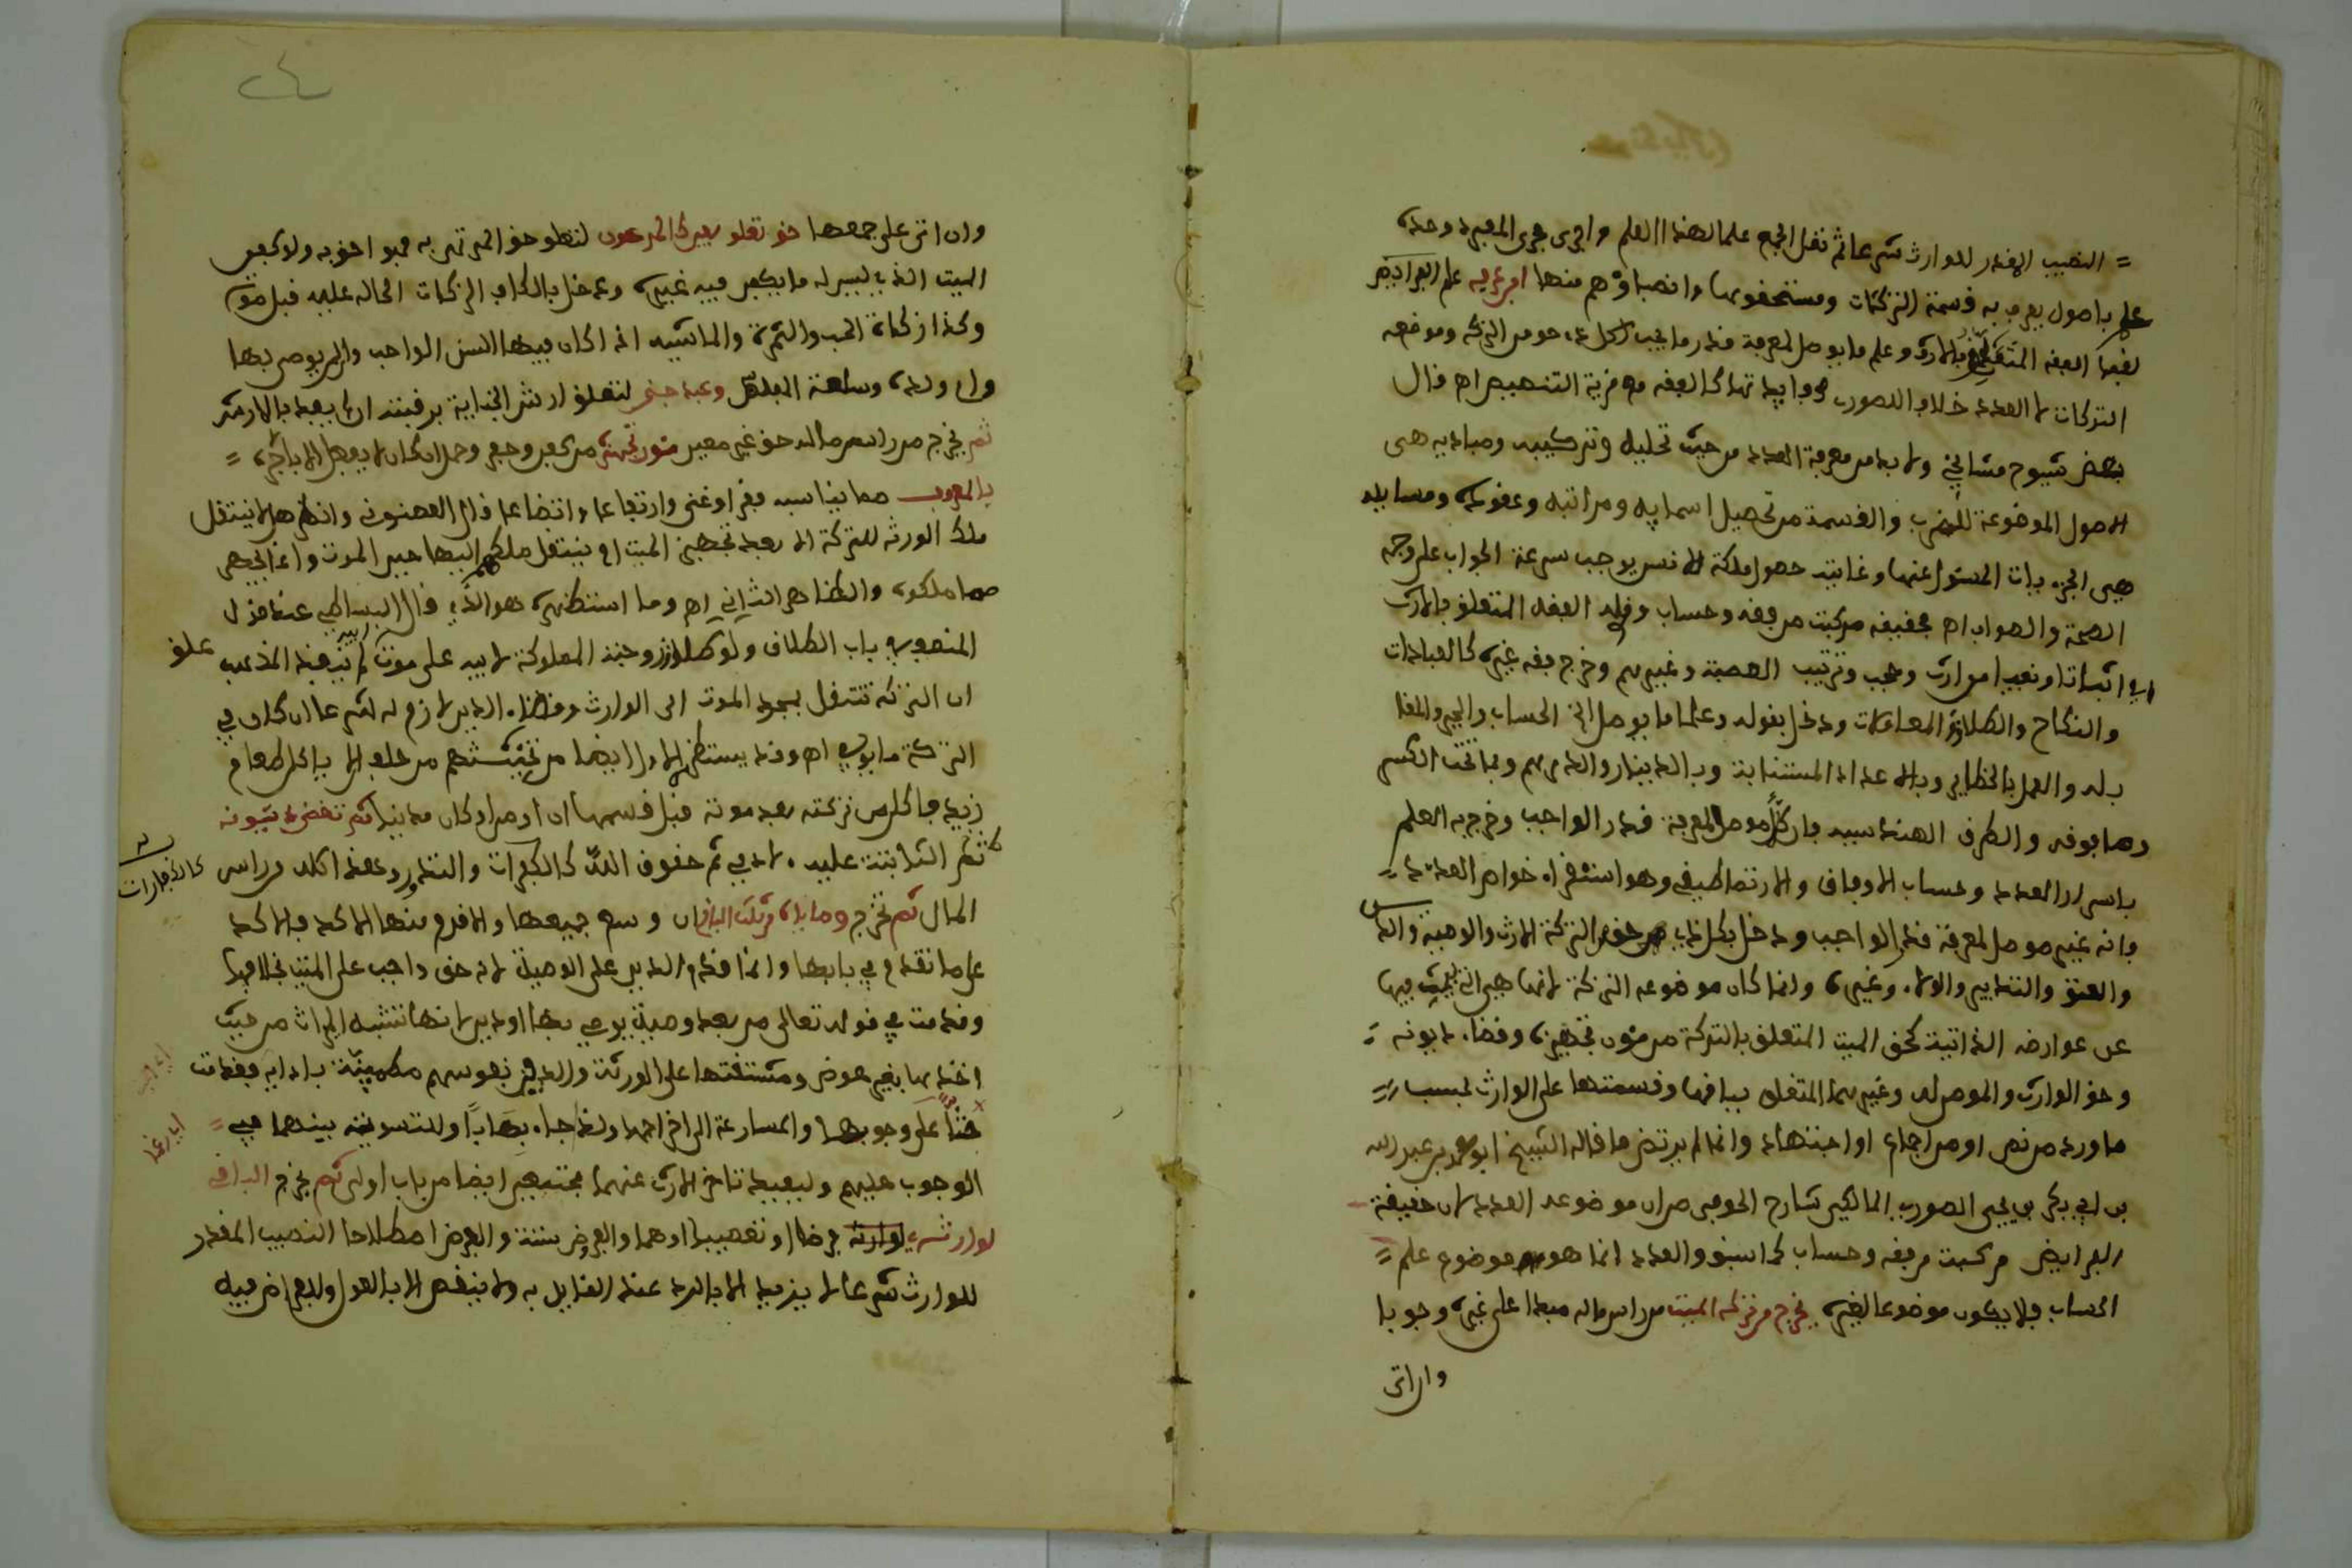 = النصيب المقدر للوارث شرعا ثم نقل الجمع علما لهذا العلم واجرى مجرى المفرد وحده
علم باصول يعرف به قسمة التركات ومستحقوها وانصباؤهم منها ابن عرفة علم الفرايض
لقبا الفقه المتعلق بالارث وعلم ما يوصل لمعرفة قدر ما يجب لكل ذي حق من التركة وموضوعه
التركات لا العدد خلاف الصورى وفايدته كالفقه مع مزية التنصيص اه قال
بعض شيوخ مشايخي ولا بد من معرفة العدد من حيث تحليله وتركيبه ومباديه هى
الاصول الموضوعة للضرب والقسمة من تحصيل اسمايه ومراتبه وعقوده ومسايله
هى الجزءيات المسئول عنها وغايته حصول ملكة للانفس يوجب سرعة الجواب على وجه
الصحة والصواب اه فحقيقته مركبة من فقه وحساب وقوله الفقه المتعلق بالارث
اي اثباتا ونفيا من ارث وحجب وترتيب العصبة وغيرهم وخرج فقه غيره كالعبادات
والنكاح والطلاق والمعاملات ودخل بقوله وعلم ما يوصل الخ الحساب والجبر والمقا
بله والعمل بالخطاين وبالاعداد المتناسبة وبالدينار والدرهم وبما تحت الكسر
وما فوقه والطرق الهندسية فان كلا موصل لمعرفة قدر الواجب وخرج به العلم
باسرار العدد وحساب الاوفاق والارتماطيقى وهو استقراء خواص العدد =
فانه غير موصل لمعرفة قدر الواجب ودخل بكل ذي حق من التركة الارث والوصية والدين
والعتق والتدبير والولاء وغيره وانما كان موضوعه التركة لانها هي التي يبحث فيها
عن عوارضه الذاتية كحق الميت المتعلق بالتركة من مؤن تجهيزه وقضاء ديونه =
وحق الوارث والموصى له وغيرهما المتعلق بباقيها وقسمتها على الوارث بحسب =
ما ورد من نص او من اجماع او اجتهاد وانما لم يرتض ما قاله الشيخ ابو محمد بن عبد الله
بن ابي بكر بن يحيى الصورى المالكي شارح الحوفى من ان موضوعه العدد لان حقيقة
الفرايض مركبة من فقه وحساب كما سبق والعدد انما هو موضوع علم =
الحساب فلا يكون موضوعا لغيره يخرج من تركة الميت من راس ماله مبدا على غيره وجوبا
وان اتى
٢٤
وان اتى على جميعها حق تعلق بعين كالمرهون لتعلق حق المرتهن به فهو احق به ولا كفن
الميت الذي ليس له ما يكفن فيه غيره ودخل بالكاف الزكات الحالة عليه قبل موته
وكذا زكاة الحب والثمرة والماشية اذا كان فيها السن الواجب وان لم يوص بها
وام ولده وسلعة المفلس وعبد جنى لتعلق ارش الجناية برقبته ان لم يفده بالارش
ثم يخرج من راس ماله حق غير معين مؤن تجهيزه من كفن وحفر وحمل ان كان لا يفعل الا باجرة =
بالمعروف مما يناسبه فقرا وغنى وارتفاعا واتضاعا قال العصنونى وانظر هل لا ينتقل
ملك الورثة للتركة الا بعد تجهيز الميت او ينتقل ملكهم اليها حين الموت وانما يجهز
مما ملكوه والظاهر الثاني اه وما استظهره هو الذي قال البساطي عند قول
المص في باب الطلاق ولو علق طلاق زوجته المملوكة لابيه على موت ابيه لم ينفذ المذهب
علق
ان التركة تنتقل بمجرد الموت الى الوارث وقضاء الدين لازم له شرعا ان كان في
التركة ما يوفي اه وقد يستظهر الاول ايضا من تحنيثهم من حلف لا ياكل طعام
زيد فاكل من تركته بعد موته قبل قسمها ان اوصى او كان مدينا ثم تقضى ديونه
ثم الثابتة عليه لادمي ثم حقوق الله كالكفرات والنذور وعقد اكله من راس
كالكفارات
المال ثم تخرج وصاياه من ثلث الباقي ان وسع جميعها والا قدم منها الاكد فالاكد
على ما تقدم في بابها وانما قدم الدين على الوصية لانه حق واجب على الميت بخلافها
وقدمت في قوله تعالى من بعد وصية يوصى بها او دين لانها تشبه الميراث من حيث
اخذها بغير عوض ومشقتها على الورثة والدين نفوسهم مطمينة بادايه فقدمت
حثا على وجوبها والمسارعة الى اخراجها ولذا جاء باو وللتسوية بينهما في =
الوجوب عليهم وليفيد تاخر الارث عنهما مجتمعين ايضا من باب اولى ثم يخرج الباقي
لوارثه لوارثه فرضا او تعصيبا او هما والفروض ستة والفرض اصطلاحا النصيب المقدر
للوارث شرعا لا يزيد الا بالرد عند القايل به ولا ينقص الا بالعول والفراض فيه